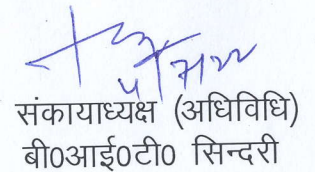 संकायाध्यक्ष (अधिविधि)
बी0आई0टी0 सिन्दरी